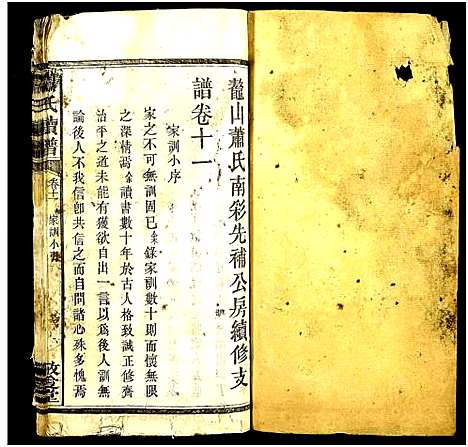 鼇山蕭氏南彩先補公房續修支
譜卷十一
家訓小序
家之不可無訓固已余錄家訓數十則而懷無限
之深情焉余讀書數十年於古人格致誠正修齊
治平之道未能有獲欲自出一言以爲後人訓無
論後人不我信卽共信之而自問諸心殊多愧焉
氏續譜
卷十一
家訓小序